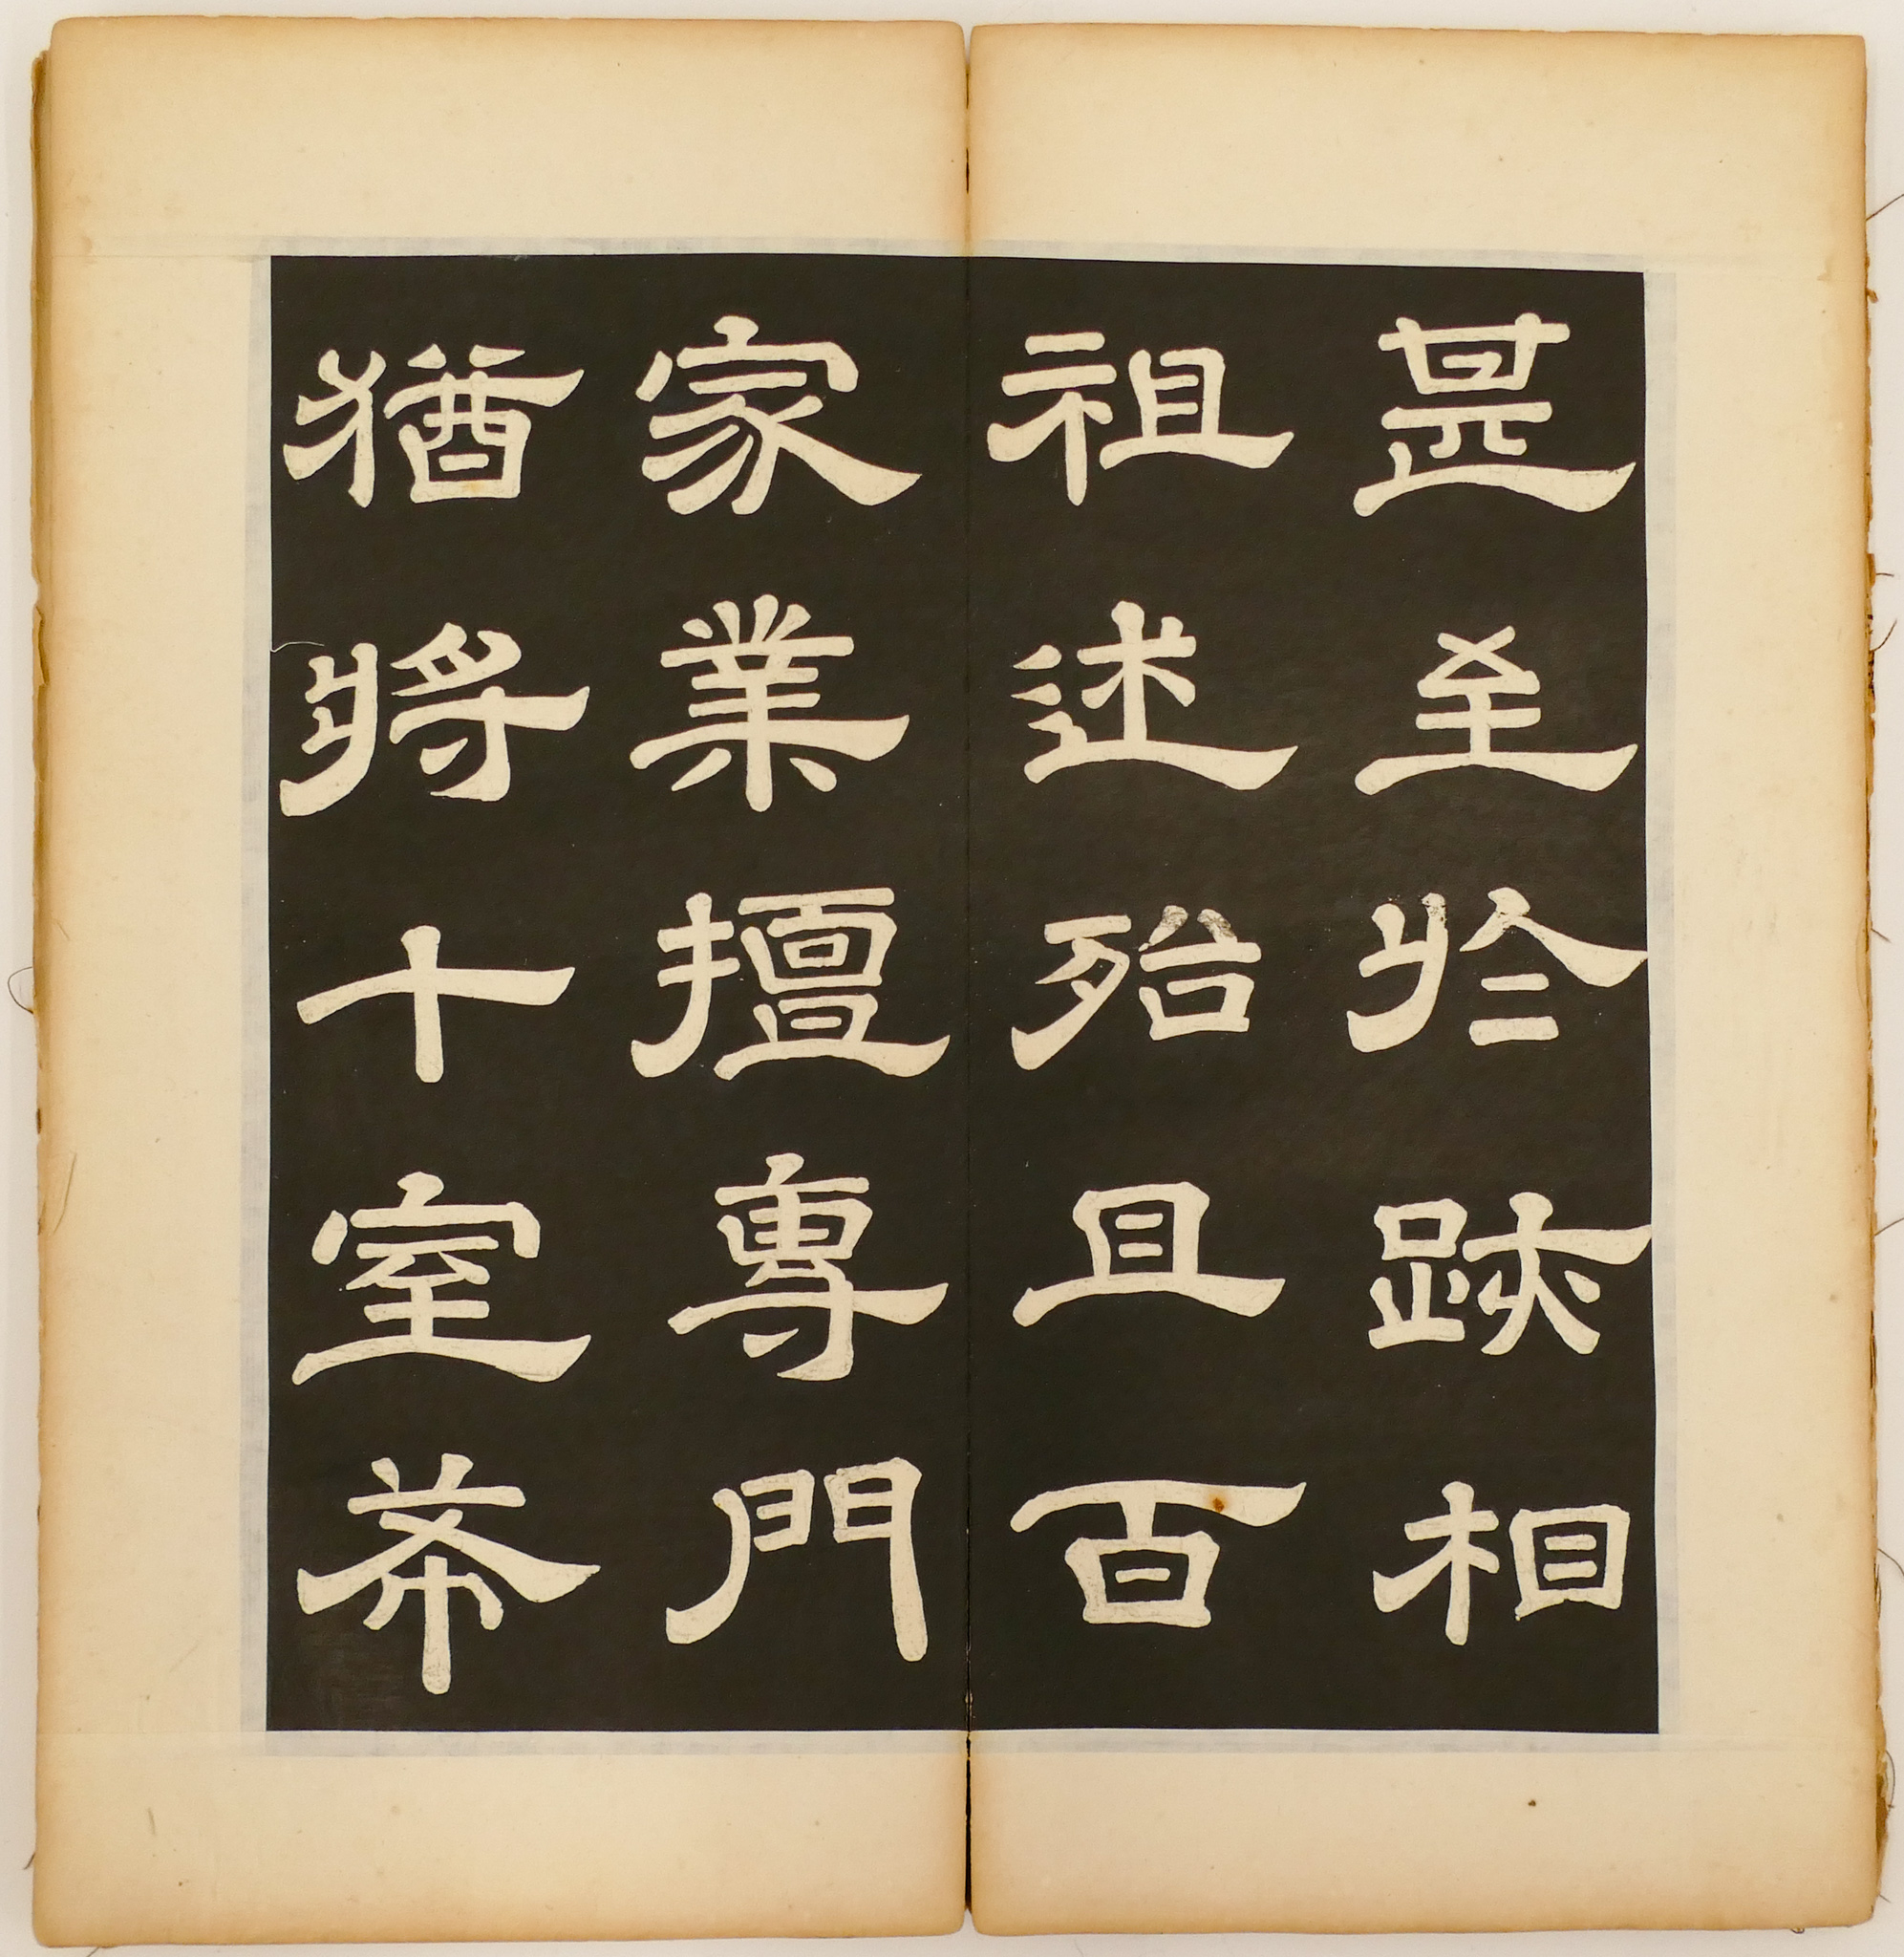 甚至於跡相
祖述殆且百
家業擅專門
猶將十室希